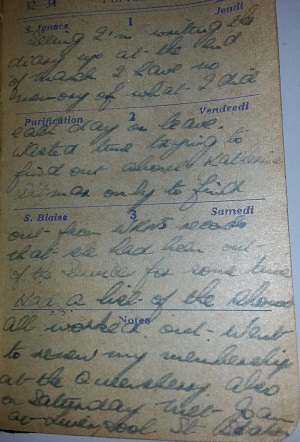 32-34 Jeudi
S. Ignace 1
Seeing I'm writing this
diary up at the end
of March I have no
memory of what I did
Purification 2 Vendredi
each day on leave.
Wasted time trying to
find out about
only to find
S. Blaise 3 Samedi
out from WRNS records
that she had been out
of the Service for some time
Had a list of the shows
Notes
all worked out. Went
to renew my membership
at the Queensberry also
on Saturday met Joan
at Liverpool St Station